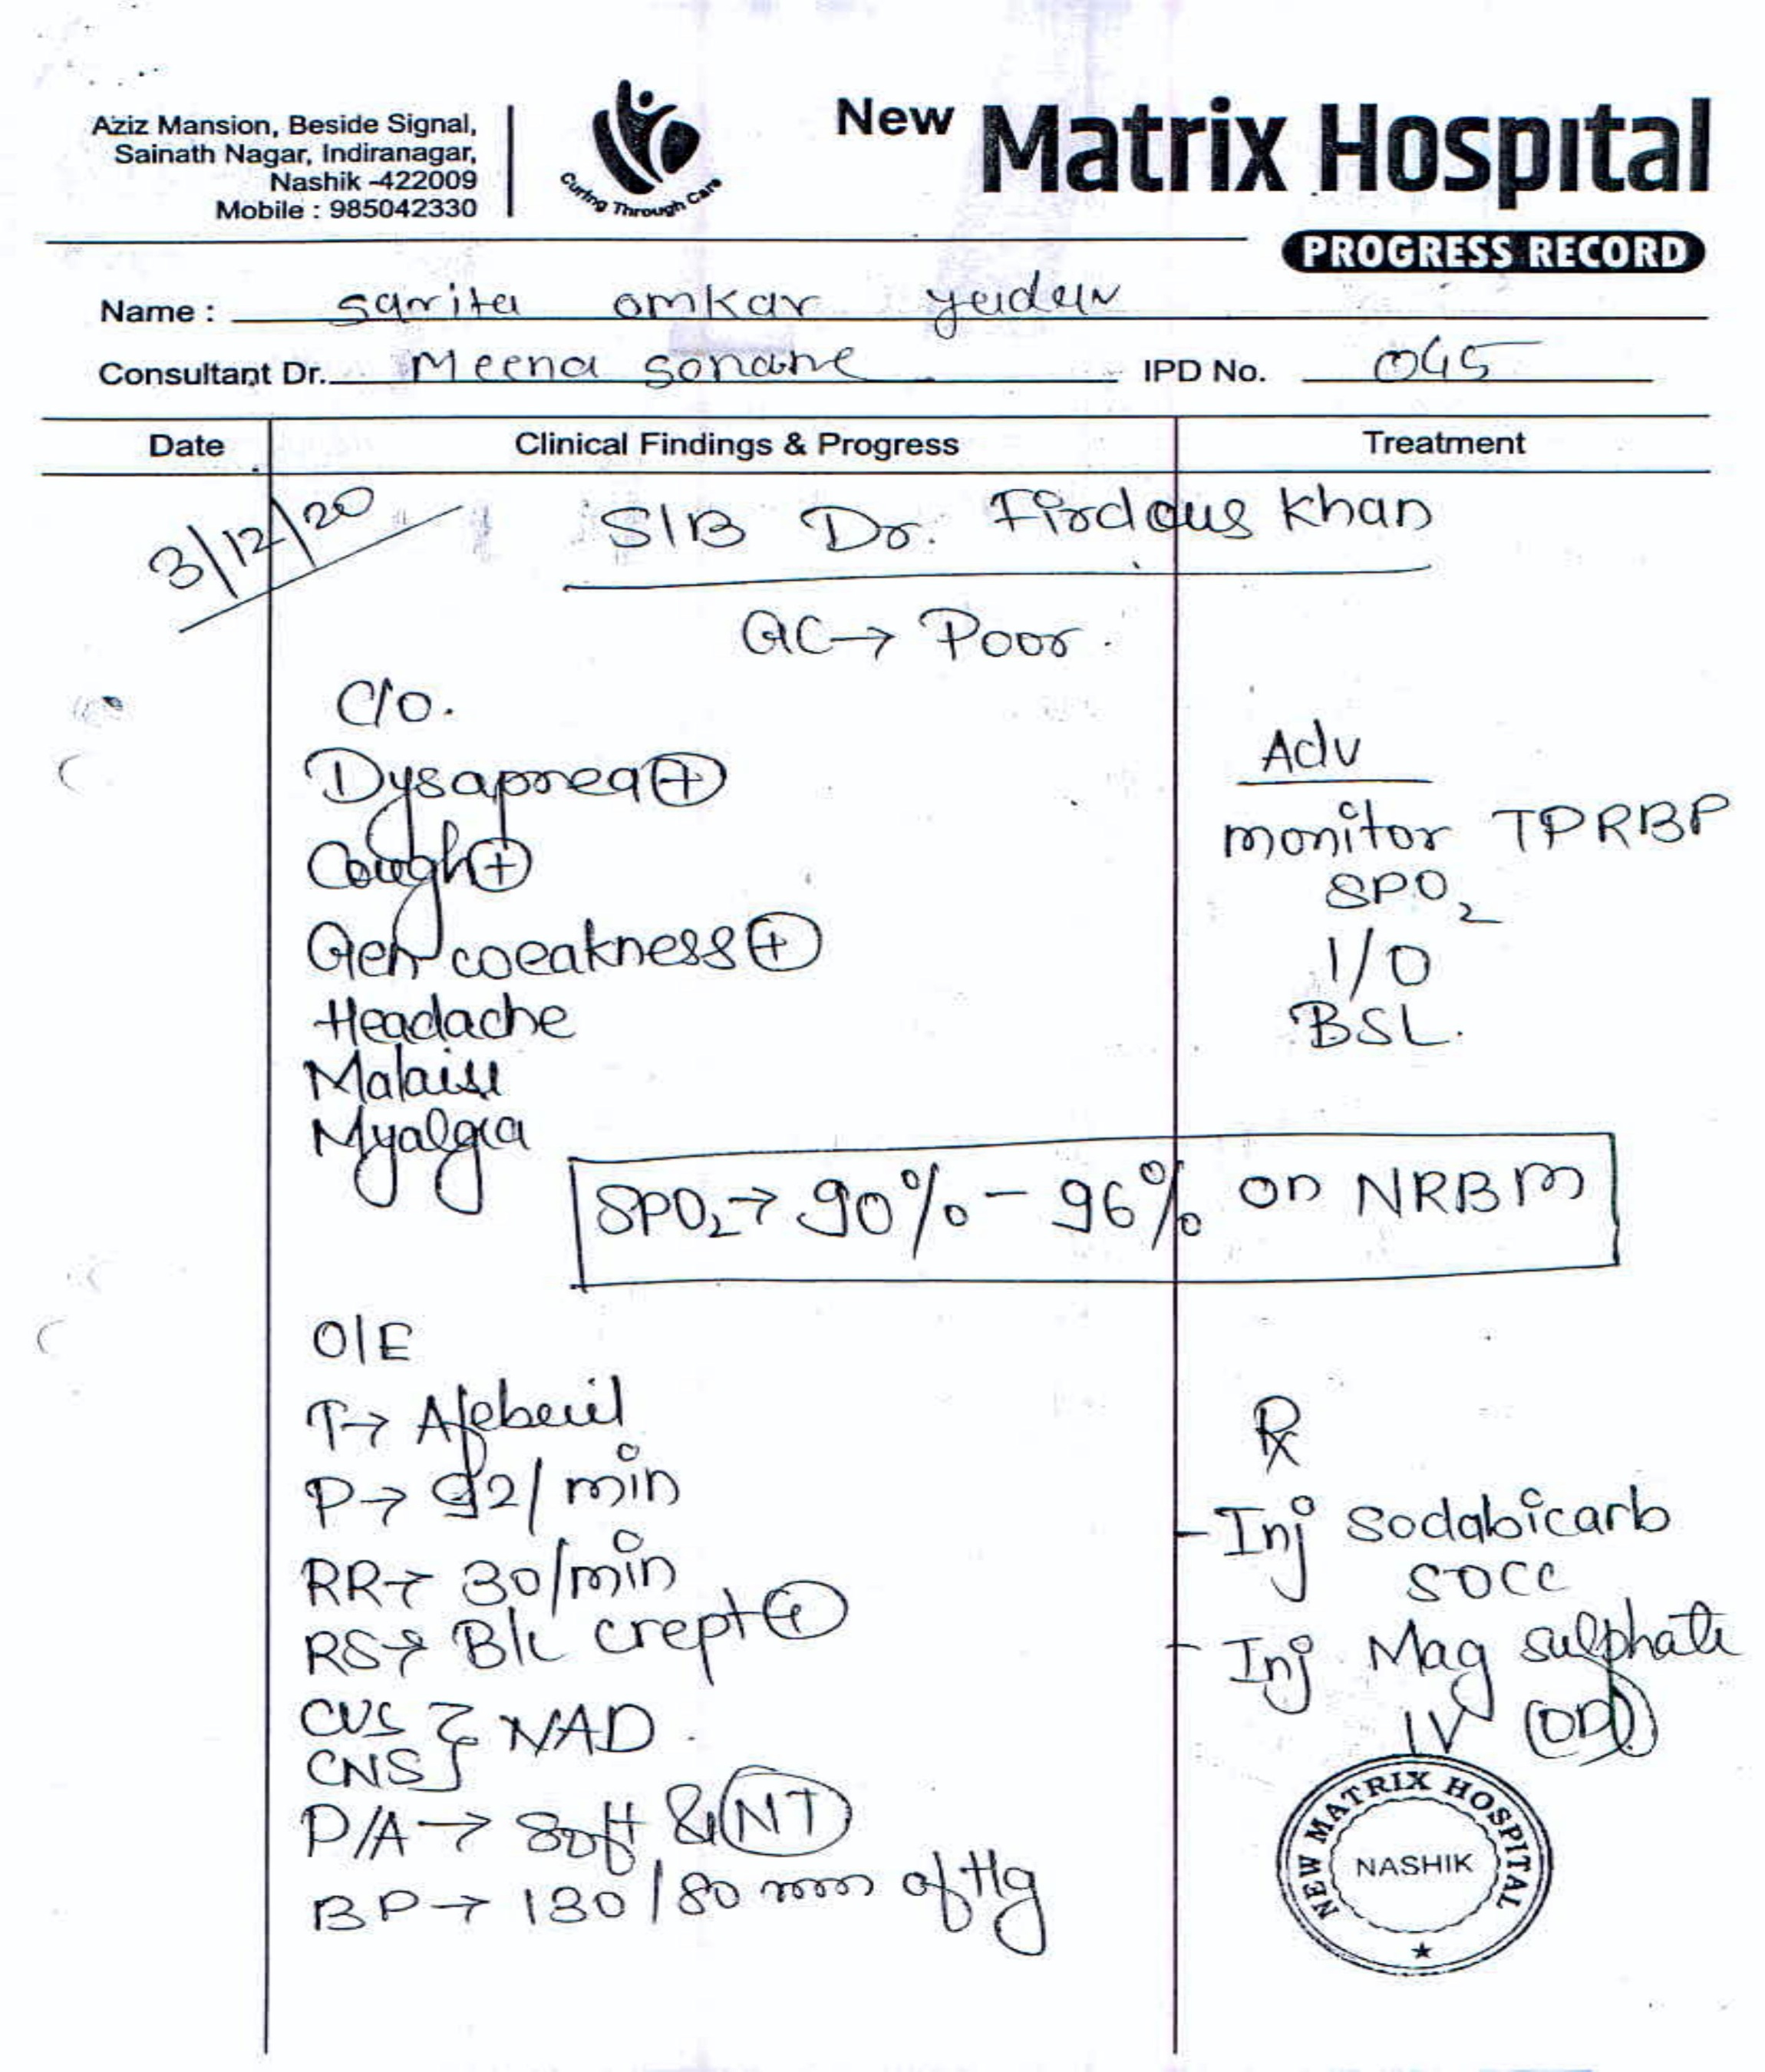 Aziz Mansion, Beside Signal,
Sainath Nagar, Indiranagar,
Nashik -422009
Mobile : 985042330
Curing Through Care
New Matrix Hospital
PROGRESS RECORD
Name : Sarita omkar yadav
Consultant Dr. Meena sonane IPD No. 045
Date Clinical Findings & Progress Treatment
3/12/20 S/B Dr. Firdous Khan
GC→ Poor.
C/O.
Dysapnea⊕
Cough⊕
Gen weakness⊕
Headache
Malaise
Myalgia
Adv
monitor TPRBP
SPO₂
I/O
BSL.
SPO₂→ 90% - 96% on NRBM
O/E
T→ Afebril
P→ 92/min
RR→ 30/min
RS→ B/L crept⊕
CVS } NAD.
CNS
P/A→ Soft & NT
BP→ 130/80 mm of Hg
Rx
- Inj Sodabicarb
50cc
- Inj Mag sulphate
IV OD
NEW MATRIX HOSPITAL
NASHIK